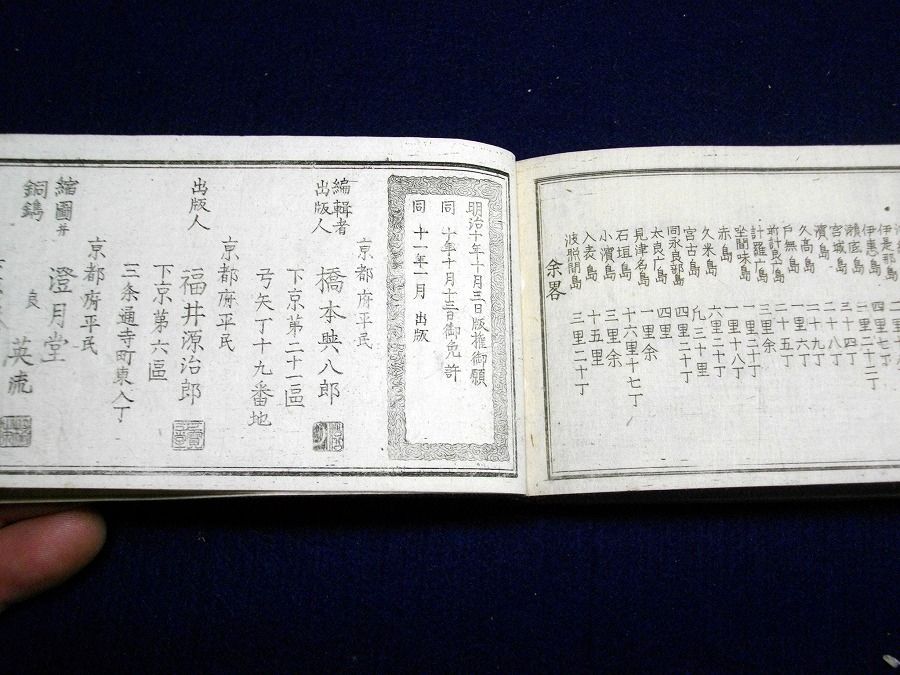 伊是那島 四里七丁
伊惠島 四里二十二丁
瀬底島
宮城島 三十四丁
濵島 二十八丁
久高島 二十九丁
戸無島 一里六丁
前計良广島 二十五丁
計羅广島 三里余
座間味島 一里二十丁
赤島 一里十八丁
久米島 六里二十丁
宮古島 凡三十里
同永良部島 四里二十丁
太良广島 四里
見津名島 一里余
石垣島 十六里十七丁
小濵島 三里余
入表島 十五里
波脱間島 三里二十丁
余畧
明治十年十月三日版權御願
同 十年十月十三日御免許
同 十一年一月 出版
京都府平民
編輯者
出版人
橋本與八郎
下京第二十一區
弓矢丁十九番地
京都府平民
出版人 福井源治郎
下京第六區
三条通寺町東入丁
京都府平民
縮圖并
銅鐫
澄月堂
良 英流